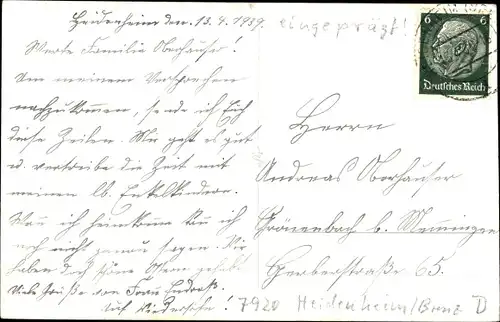 Heidenheim den 13.4.1939.
eingeprägt!
Werte Familie Oberhauser!
Um meinem Versprechen
nachzukommen, sende ich Euch
diese Zeilen. Mir geht es gut
u. vertreibe die Zeit mit
meinen lb. Enkelkindern.
Wann ich heimkomme kan ich
noch nicht genau sagen. Wir
haben doch schöne Ostern gehabt
Viele Grüße von Frau
Auf Wiedersehn!
6 6
Deutsches Reich
Herrn
Andreas Oberhauser
Grönenbach b. Memmingen
Gerberstraße 65.
7920 Heidenheim/Brenz D